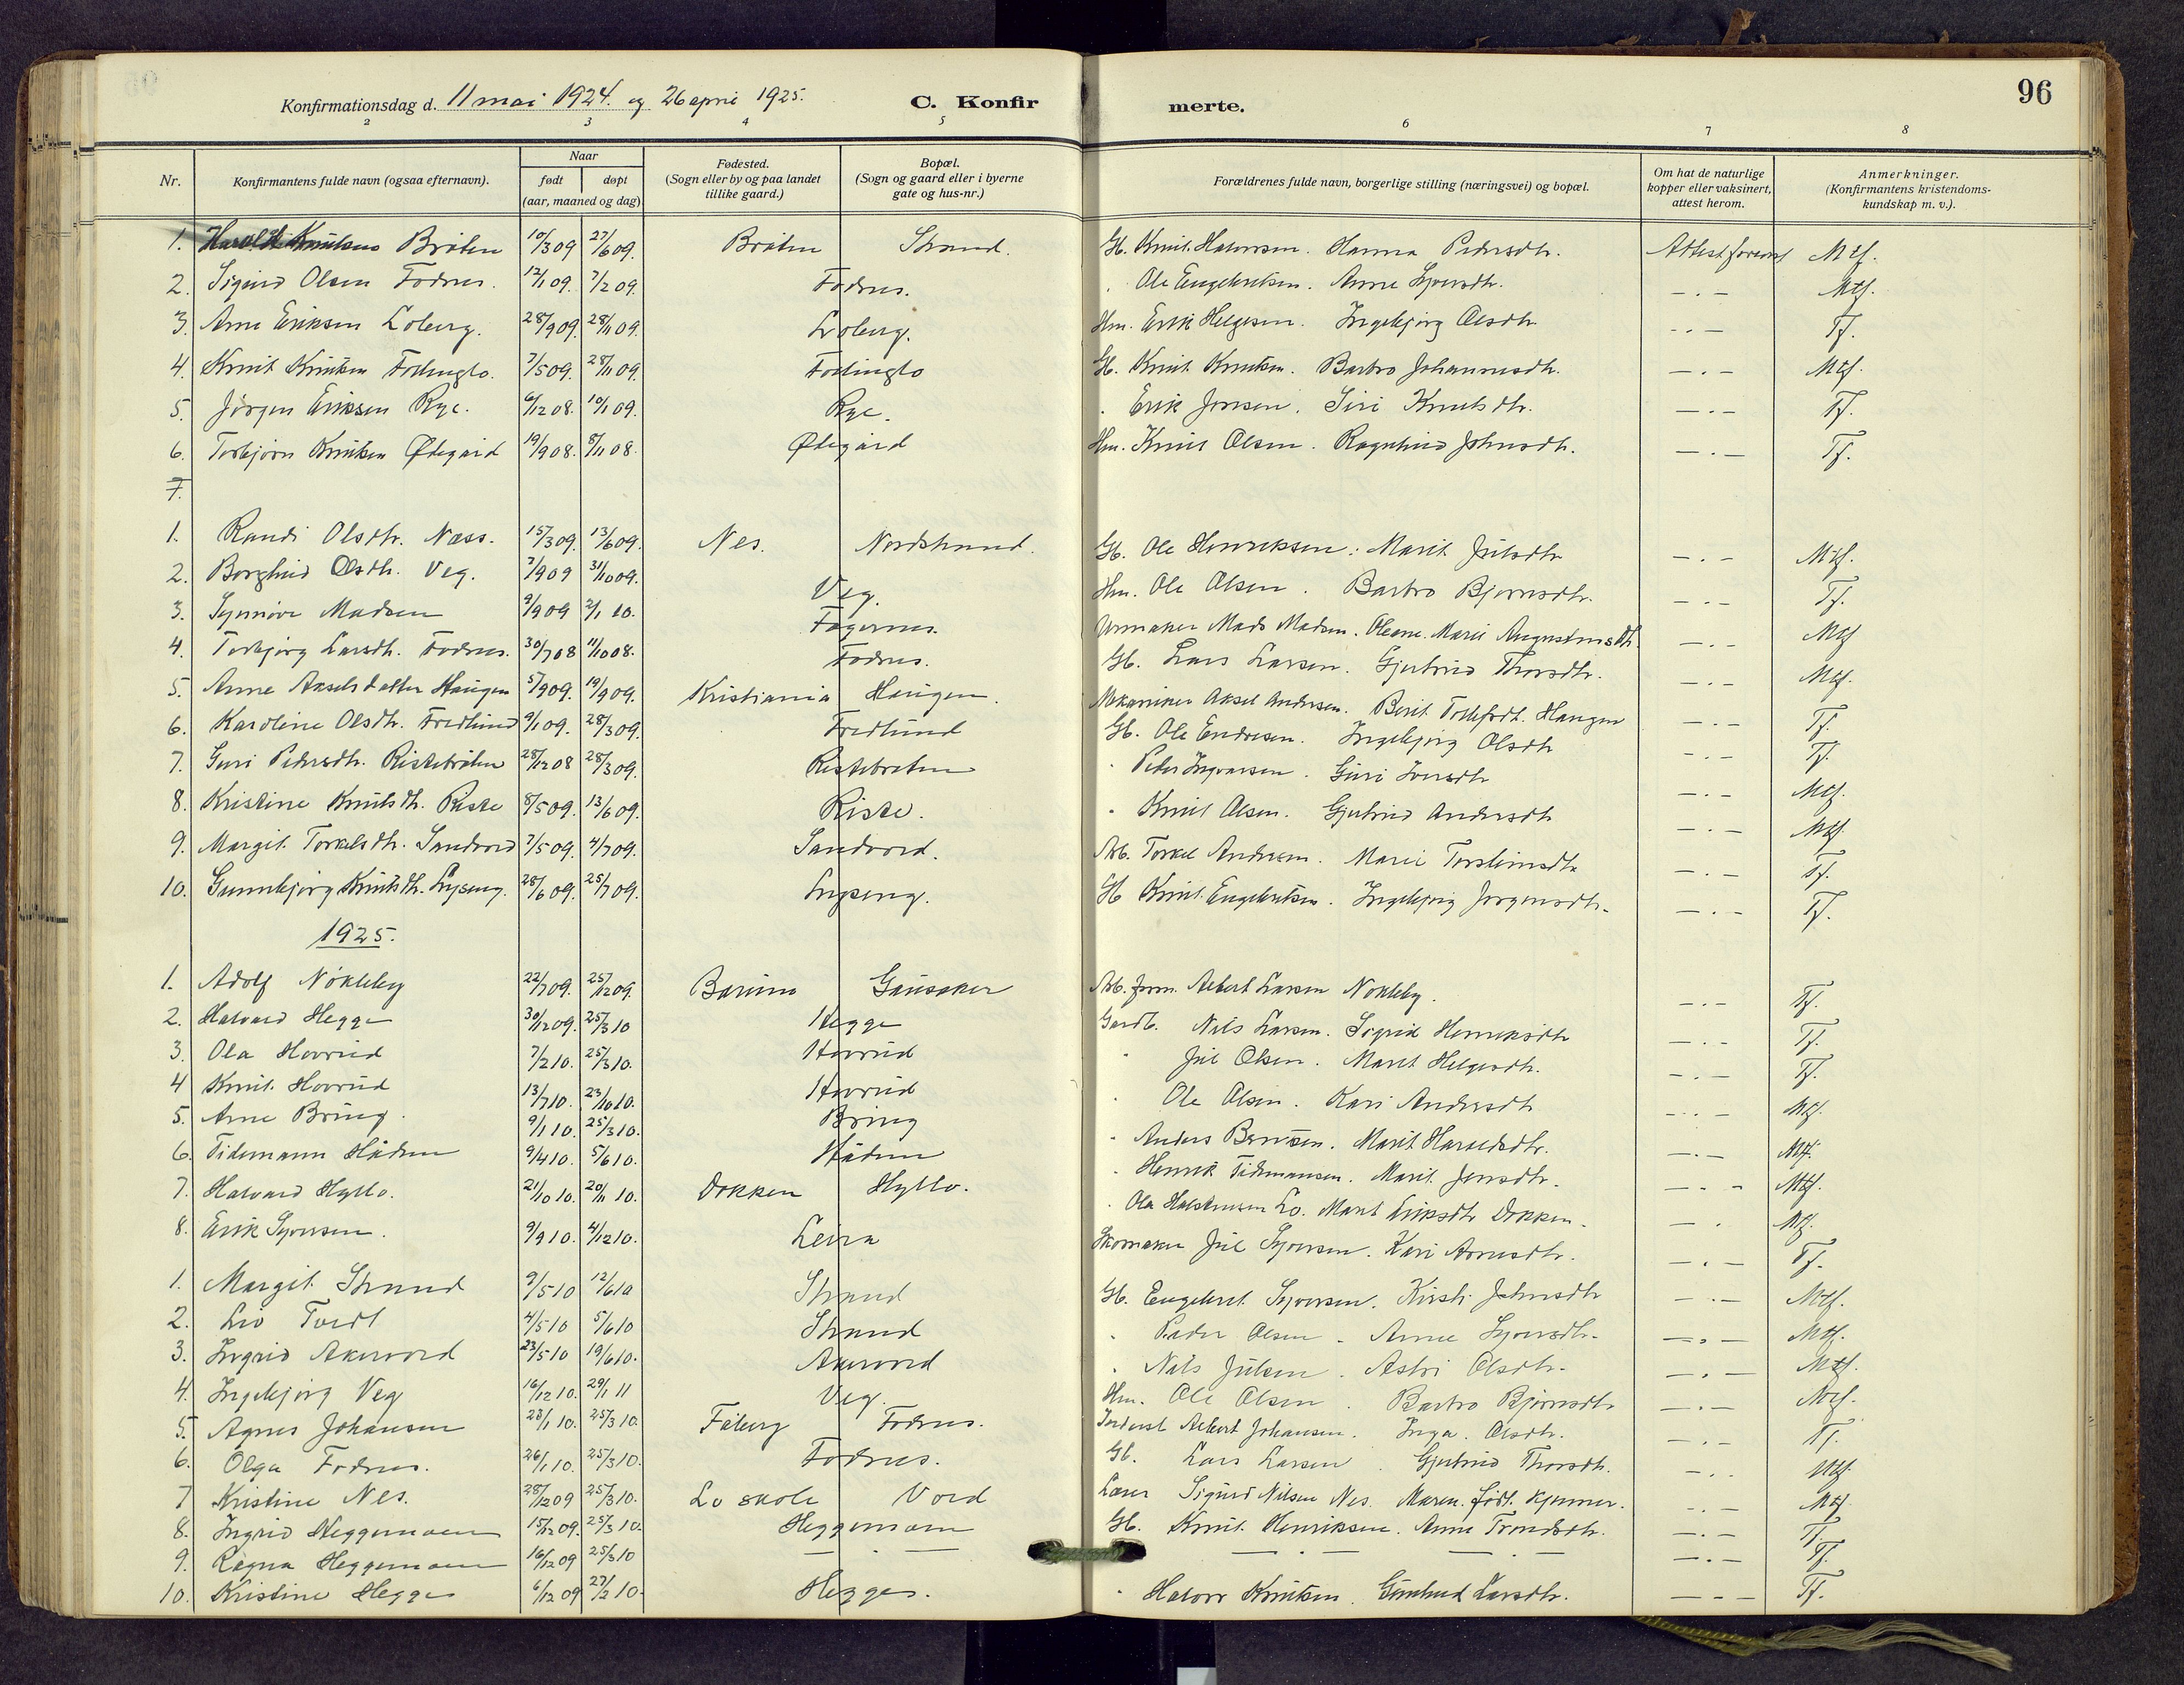 96
Konfirmationsdag d. 11 mai 1924. og 26 april 1925. C. Konfirmerte.
2 3 4 5 6 7 8
Nr. Konfirmantens fulde navn (ogsaa efternavn). Naar født døpt (aar, maaned og dag) Fødested. (Sogn eller by og paa landet tillike gaard.) Bopæl. (Sogn og gaard eller i byerne gate og hus-nr.) Forældrenes fulde navn, borgerlige stilling (næringsvei) og bopæl. Om hat de naturlige kopper eller vaksinert, attest herom. Anmerkninger. (Konfirmantens kristendoms-kundskap m. v.).
1. Harald Knutsen Bråten 10/3 09 27/6 09. Bråten Strand. Gb. Knut Halvorsen. Hanna Pedersdtr. Attest forevist Mtf.
2. Sigurd Olsen Fodnes. 12/1 09. 7/2 09. Fodnes. Ole Engebretsen. Anne Syversdtr. — . — Mtf.
3. Arne Eriksen Loberg. 28/9 09. 28/11 09. Loberg. Hm. Erik Helgesen. Ingebjørg Olsdtr. — . — Tf.
4. Knut Knutsen Fodlinglo. 7/5 09. 28/11 09. Fodlinglo Gb. Knut Knutsen. Barbro Johannesdtr. — . — Mtf.
5. Jørgen Eriksen Rye. 6/12 08. 10/1 09. Rye. Erik Jonsen. Siri Knutsdtr. — . — Tf.
6. Torbjørn Knutsen Ødegård 19/9 08. 8/11 08. Ødegård Hm. Knut Olsen. Ragnhild Johnsdtr. — . — Tf.
7.
1. Randi Olsdtr. Næss. 15/3 09. 13/6 09. Nes. Nordstrand. Gb. Ole Henriksen. Marit Julsdtr. — . — Mtf.
2. Borghild Olsdtr. Veg. 7/9 09 31/10 09. Veg. Hm. Ole Olsen. Barbro Bjørnsdtr. — . — Tf.
3. Synnøve Madsen 9/9 09 2/1 10. Fagernes. Urmaker Mads Madsen. Oleane Marie Augustinusdtr. — . — Mtf
4. Torbjørg Larsdtr. Fodnes. 30/7 08 11/10 08. Fodnes. Gb. Lars Larsen. Gjertrud Thorsdtr. — . — Mtf.
5. Anne Akselsdatter Haugen 5/9 09. 19/9 09. Kristiania Haugen. Mekaniker Aksel Andersen. Berit Tollefsdt. Haugen — . — Tf.
6. Karoline Olsdtr. Fredlund 9/1 09. 28/3 09. Fredlund Gb. Ole Endresen. Ingebjørg Olsdtr — . — Tf.
7. Guri Pedersdtr. Ristebråten 28/12 08 28/3 09. Ristebråten Peder Ingvarsen. Guri Iversdtr — . — Mtf.
8. Kristine Knutsdtr. Riste 8/5 09. 13/6 09. Riste. Knut Olsen. Gjertrud Andersdtr — . — Mtf.
9. Margit Torkelsdtr. Sandvord 7/5 09. 4/7 09. Sandvord. Arb. Torkel Andersen. Marie Torsteinsdtr — . — Tf.
10. Gunnbjørg Knutsdtr. Lyseng. 28/6 09. 25/7 09. Lyseng. Gb Knut Engebretsen. Ingebjørg Jørgensdtr. — . — Tf.
1925.
1. Adolf Nökleby 22/7 09. 25/12 09. Bærum Gausaker Arb. form. Albert Larsen Nökleby. — . — Tf.
2. Halvard Hegge 30/12 09. 25/3 10 Hegge Gardb. Nils Larsen. Sigrid Henriksdtr — . — Tf.
3. Ola Hovrud 7/2 10. 25/3 10. Hovrud Jul Olsen. Marit Helgesdtr. — . — Tf.
4 Knut Hovrud 13/7 10. 23/10 10. Hovrud Ole Olsen. Kari Andersdtr — . — Mtf.
5. Arne Bring. 9/1 10. 25/3 10. Bring Anders Marit Haraldsdtr. — . — Mtf.
6. Tidemann Håden 9/4 10. 5/6 10. Håden Henrik Tidemansen. Marit Jensdtr. — . — Mtf.
7. Halvard Hyllo. 21/10 10. 20/11 10. Dokken Hyllo. Ola Halstensen Lo. Marit Eriksdtr Dokken. — . Mtf.
8. Erik Syversen. 9/9 10. 4/12 10. Leira Skomaker Jul Syversen. Kari Arnesdtr. — . — Tf.
1. Margit Strand 9/5 10 12/6 10 Strand Gb. Engebret Syversen. Kirsti Johnsdtr — . — Mtf.
2. Liv 4/5 10 5/6 10 Strand Peder Olsen. Anne Syversdtr. — . — Mtf.
3. Ingrid Akervord 23/5 10 19/6 10. Akervord Nils Julsen. Astri Olsdtr. — . — Mtf.
4. Ingebjørg Veg 16/12 10. 29/1 11 Veg. Hm. Ole Olsen. Barbro Bjørnsdtr — . — Mtf.
5. Agnes Johansen 23/1 10. 25/3 10. Fåberg Fodnes. Albert Johansen. Inga Olsdtr. — . — Tf.
6. Olga Fodnes. 26/1 10. 25/3 10. Fodnes. Gb. Lars Larsen. Gjertrud Thorsdtr. — . . Mtf.
7 Kristine Nes. 28/12 09 25/3 10. Lo skole Vord Lærer Sigurd Nilsen Nes. Maren født — . — Mtf.
8. Ingrid Heggemoen 15/12 09. 25/3 10. Heggemoen Gb. Knut Henriksen. Anne Trondsdtr. — . — Tf.
9. Ragna Heggemoen 16/12 09 25/3 10 — . — — . — — . — Tf.
10. Kristine Hegge 6/12 09 27/2 10. Hegge. Halvor Knutsen. Gunhild Larsdtr. — . — Tf.